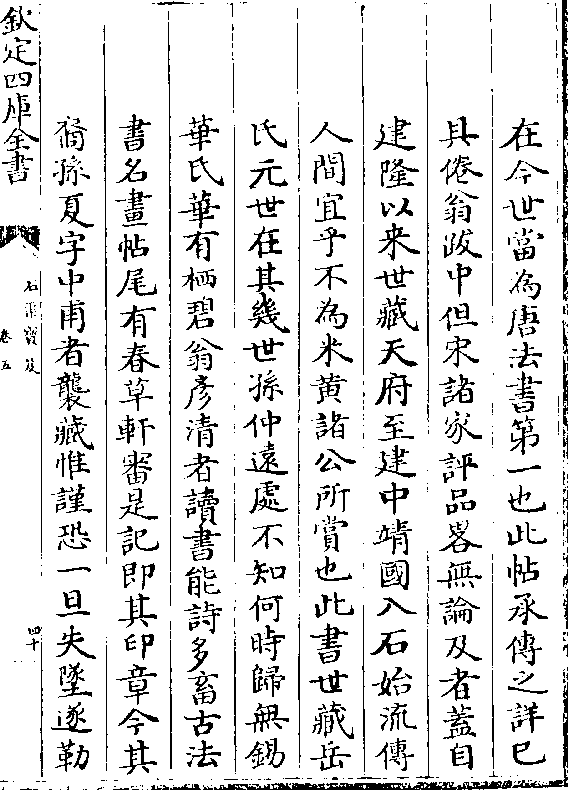 在今世當為唐法書第一也此帖承傳之詳已
具倦翁跋中但宋諸家評品畧無論及者蓋自
建隆以來世藏天府至建中靖國入石始流傳
人間宜乎不為米黄諸公所賞也此書世藏岳
氏元世在其幾世孫仲遠處不知何時歸無錫
華氏華有栖碧翁彦清者讀書能詩多畜古法
書名畫帖尾有春草軒審是記即其印章今其
裔孫夏字中甫者襲藏惟謹恐一旦失墜遂勒
欽定四庫全書
石渠寶笈
卷五
四十